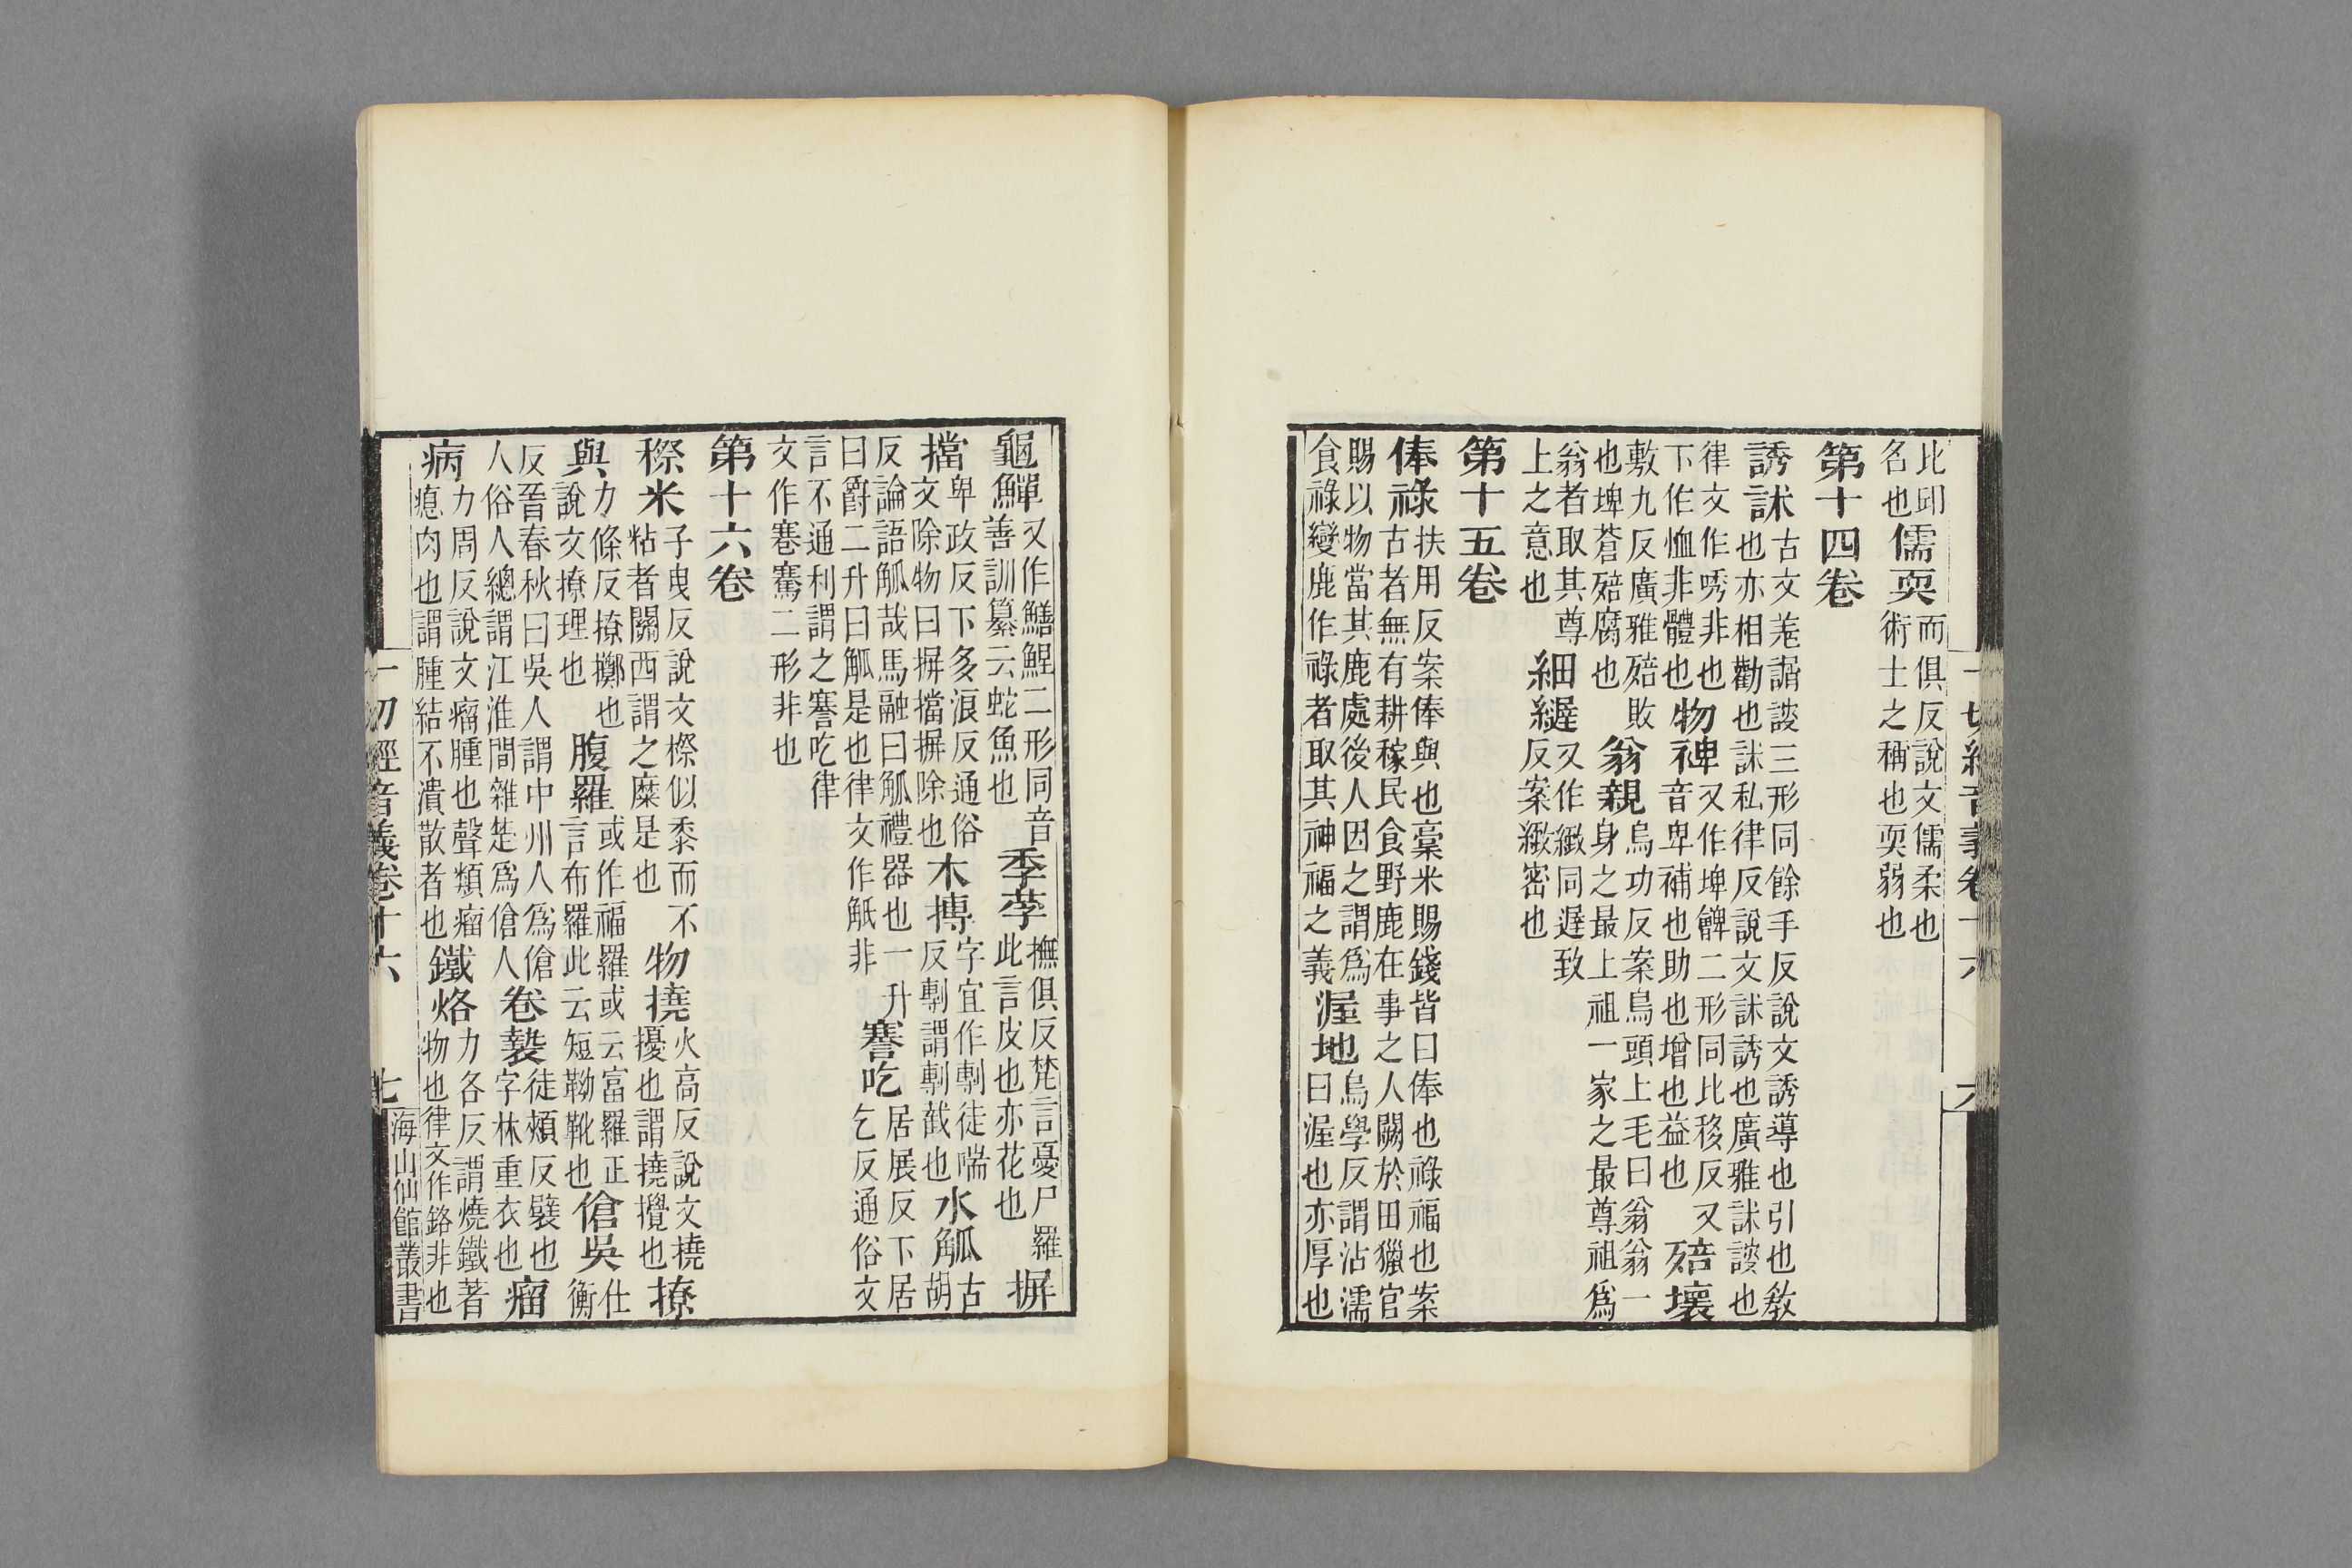 一切經音義卷十六 六
比邱名也儒耎而俱反說文儒柔也術士之稱也耎弱也
第十四卷
誘訹古文羐䛻䛢三形同餘手反說文誘導也引也敎也亦相勸也訹私律反說文訹誘也廣雅訹䛢也
律文作唀非也下作恤非體也物裨又作埤䚜二形同比移反又音卑補也助也增也益也殕壞
敷九反廣雅殕敗也埤蒼殕腐也翁親烏功反案鳥頭上毛曰翁翁一身之最上祖一家之最尊祖爲
翁者取其尊上之意也細䌤又作緻同遲致反案緻密也
第十五卷
俸祿扶用反案俸與也稾米賜錢皆曰俸也祿福也案古者無有耕稼民食野鹿在事之人闕於田獵官
賜以物當其鹿處後人因之謂爲食祿變鹿作祿者取其神福之義渥地烏學反謂沾濡曰渥也亦厚也
龜鱓又作鱔䱇二形同音善訓纂云蛇魚也季荂撫俱反梵言憂尸羅此言皮也亦花也摒
擋卑政反下多浪反通俗文除物曰摒擋摒除也木摶字宜作剸徒喘反剸謂剸截也水觚古胡
反論語觚哉馬融曰觚禮器也一升曰爵二升曰觚是也律文作觝非謇吃居展反下居乞反通俗文
言不通利謂之謇吃律文作蹇騫二形非也
第十六卷
穄米子曳反說文穄似黍而不粘者關西謂之糜是也物撓火高反說文撓擾也謂撓攪也撩
與力條反撩擲也說文撩理也腹羅或作福羅或云富羅正言布羅此云短靿靴也傖吳仕衡
反晉春秋曰吳人謂中州人爲傖人俗人總謂江淮間雜楚爲傖人卷褺徒頰反襞也字林重衣也瘤
病力周反說文瘤腫也聲類瘤瘜肉也謂腫結不潰散者也鐵烙力各反謂燒鐵著物也律文作鉻非也
一切經音義卷十六 七 海山仙館叢書